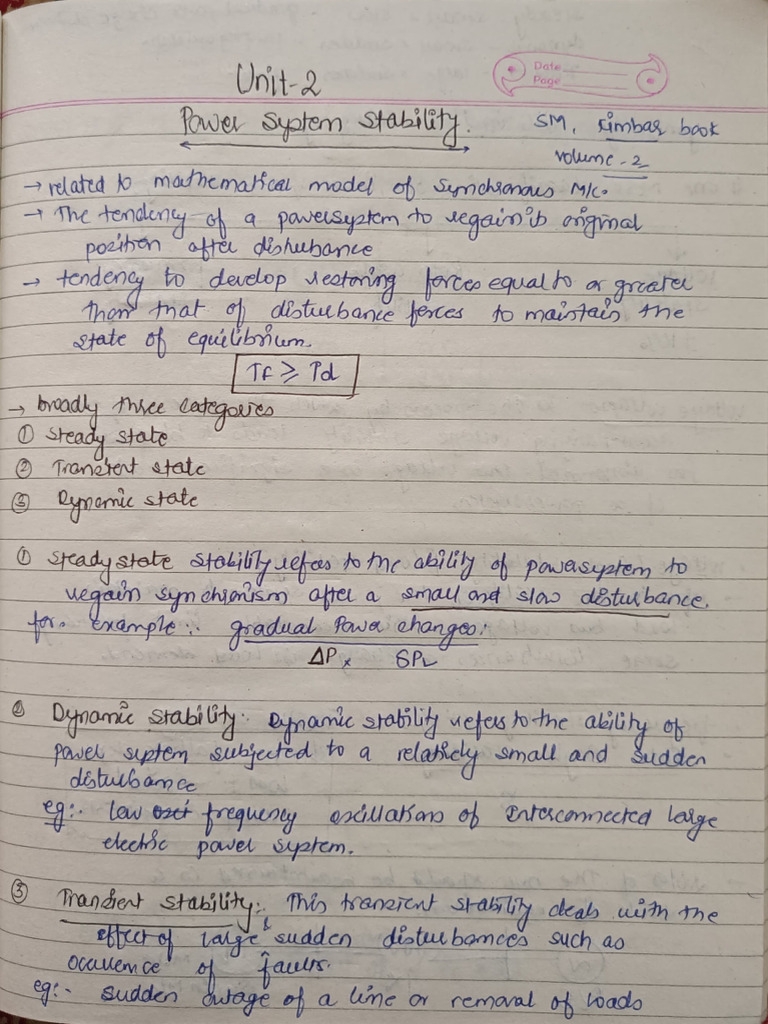 Unit-2
Date
Page
Power System Stability.
SM, kimbar book
volume - 2
→ related to mathematical model of Synchronous M/c.
→ The tendency of a powersystem to regain its original
position after disturbance
→ tendency to develop restoring forces equal to or greater
than that of disturbance forces to maintain the
state of equilibrium.
Tf ≥ Td
→ broadly three categories
① steady state
② Transient state
③ Dynamic state
① steady state stability refers to the ability of powersystem to
regain synchronism after a small and slow disturbance.
for. example:. gradual Power changes:
ΔP x δPL
② Dynamic stability: Dynamic stability refers to the ability of
power system subjected to a relatively small and sudden
disturbance
eg:. low frequency oscillations of Interconnected large
electric power system.
③ Transient stability:. This transient stability deals with the
effect of large & sudden disturbances such as
occurence of faults.
eg:- sudden outage of a line or removal of loads